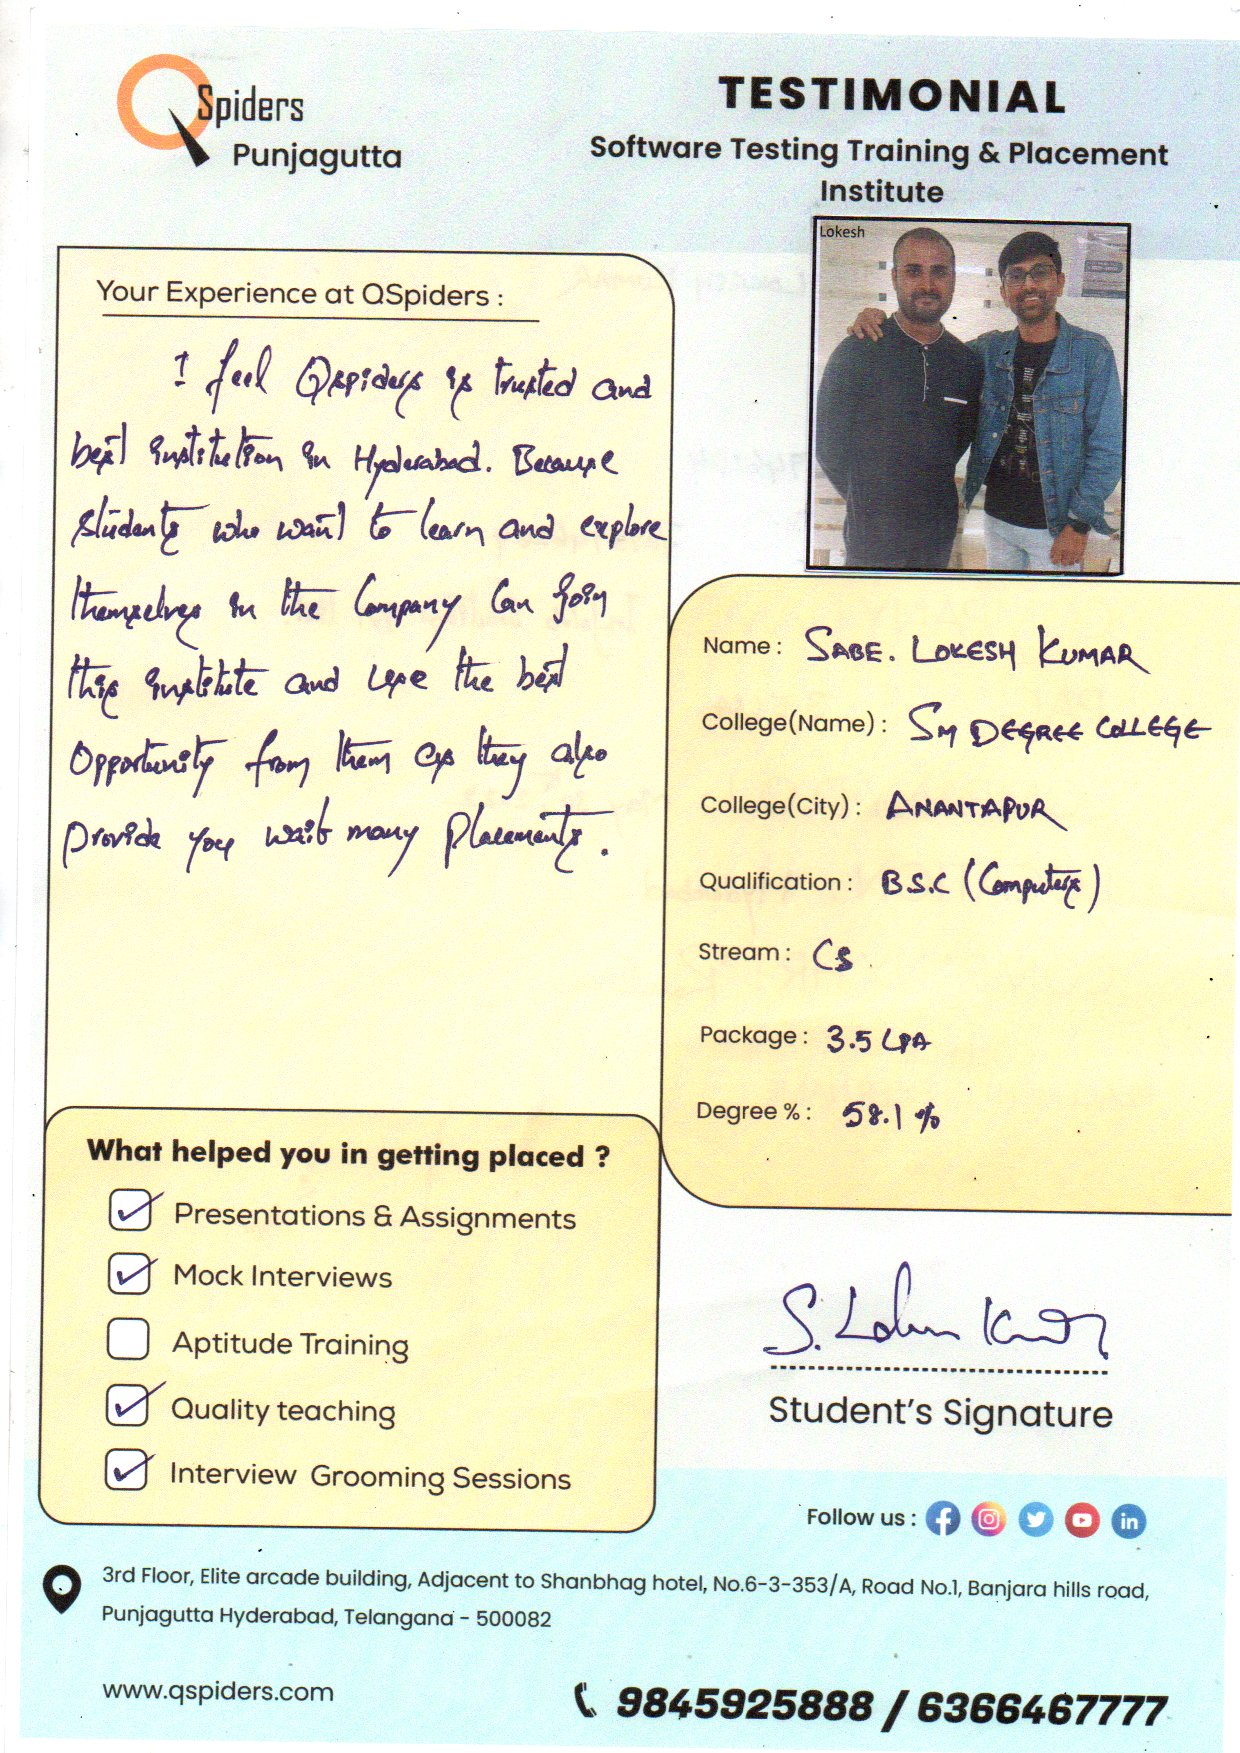 QSpiders
Punjagutta
TESTIMONIAL
Software Testing Training & Placement
Institute
Lokesh
Your Experience at QSpiders :
I feel Qspiders is trusted and
best institution in Hyderabad. Because
students who want to learn and explore
themselves in the Company Can join
this institute and use the best
Opportunity from them as they also
provide you wait many Placements.
Name : SABE. LOKESH KUMAR
College(Name) : SM DEGREE COLLEGE
College(City) : ANANTAPUR
Qualification : B.S.C (Computers)
Stream : CS
Package : 3.5 LPA
Degree % : 58.1 %
What helped you in getting placed ?
Presentations & Assignments
Mock Interviews
Aptitude Training
Quality teaching
Interview Grooming Sessions
S. Lokesh Kumar
Student's Signature
Follow us :
3rd Floor, Elite arcade building, Adjacent to Shanbhag hotel, No.6-3-353/A, Road No.1, Banjara hills road,
Punjagutta Hyderabad, Telangana - 500082
www.qspiders.com
9845925888 / 6366467777